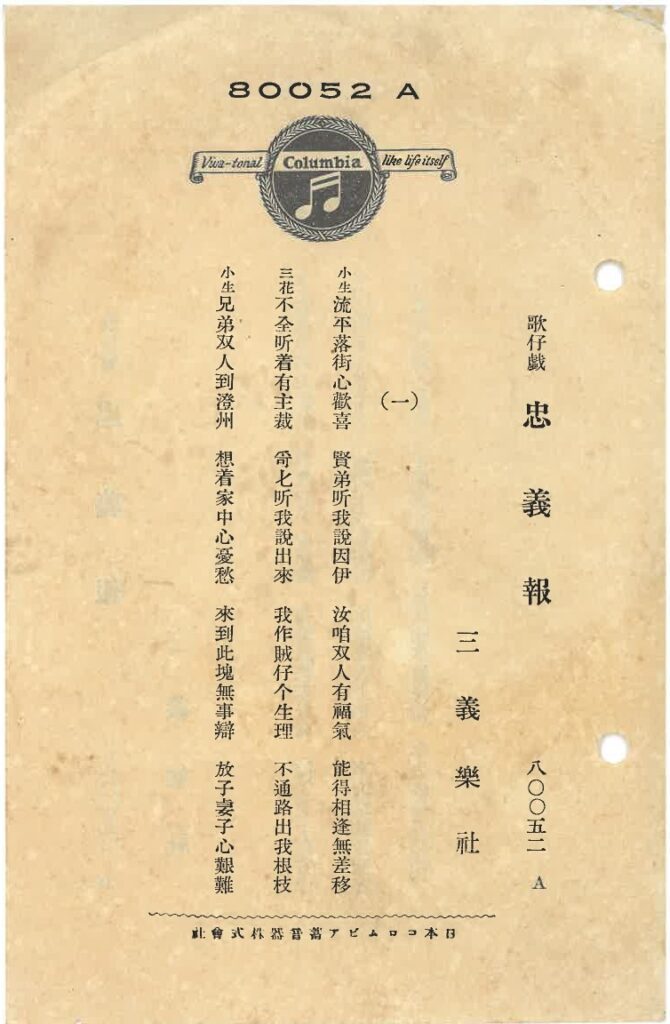 80052 A
Viva-tonal Columbia like life itself
歌仔戯 忠義報 八〇〇五二 A
三義樂社
(一)
小生 流平落街心歡喜 賢弟听我說因伊 汝咱双人有福氣 能得相逢無差移
三花 不全听着有主裁 哥七听我說出來 我作賊仔个生理 不通路出我根枝
小生 兄弟双人到澄州 想着家中心憂愁 來到此塊無事辯 放子妻子心艱難
日本コロムビア蓄音器株式會社